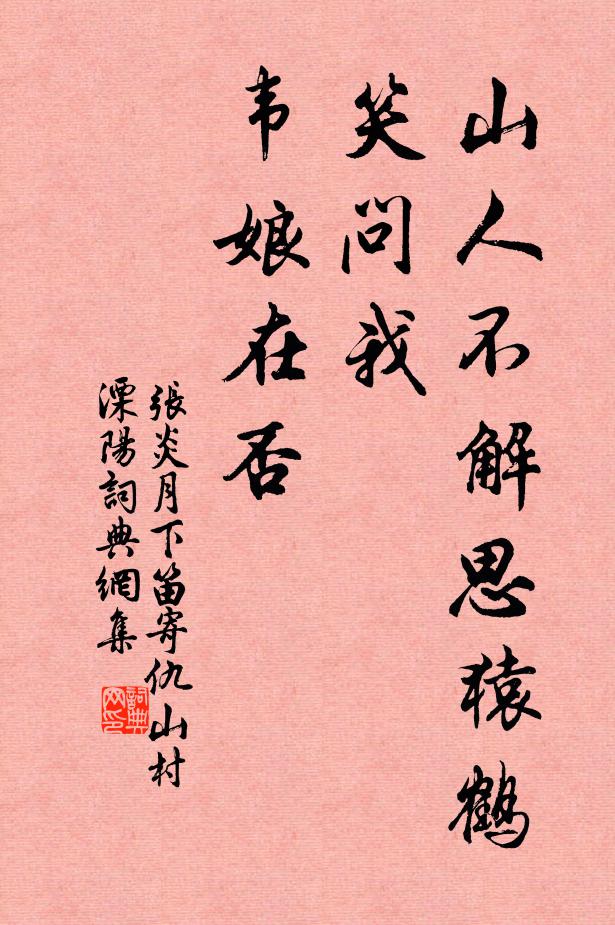 山人不解思猿鶴
笑問我
韦娘在否
張炎月下笛寄仇山村
溧陽詞典網集
詞典
网印